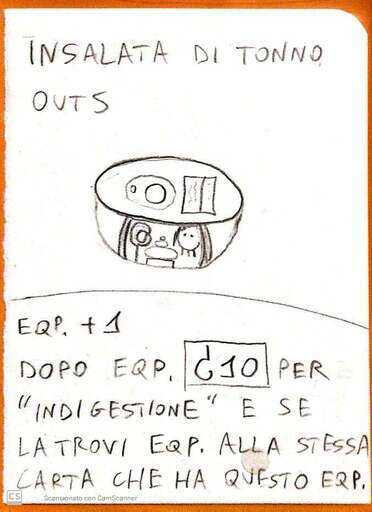 INSALATA DI TONNO
OUTS
EQP. +1
DOPO EQP. G10 PER
"INDIGESTIONE" E SE
LA TROVI EQP. ALLA STESSA
CARTA CHE HA QUESTO EQP.
CS Scansionato con CamScanner